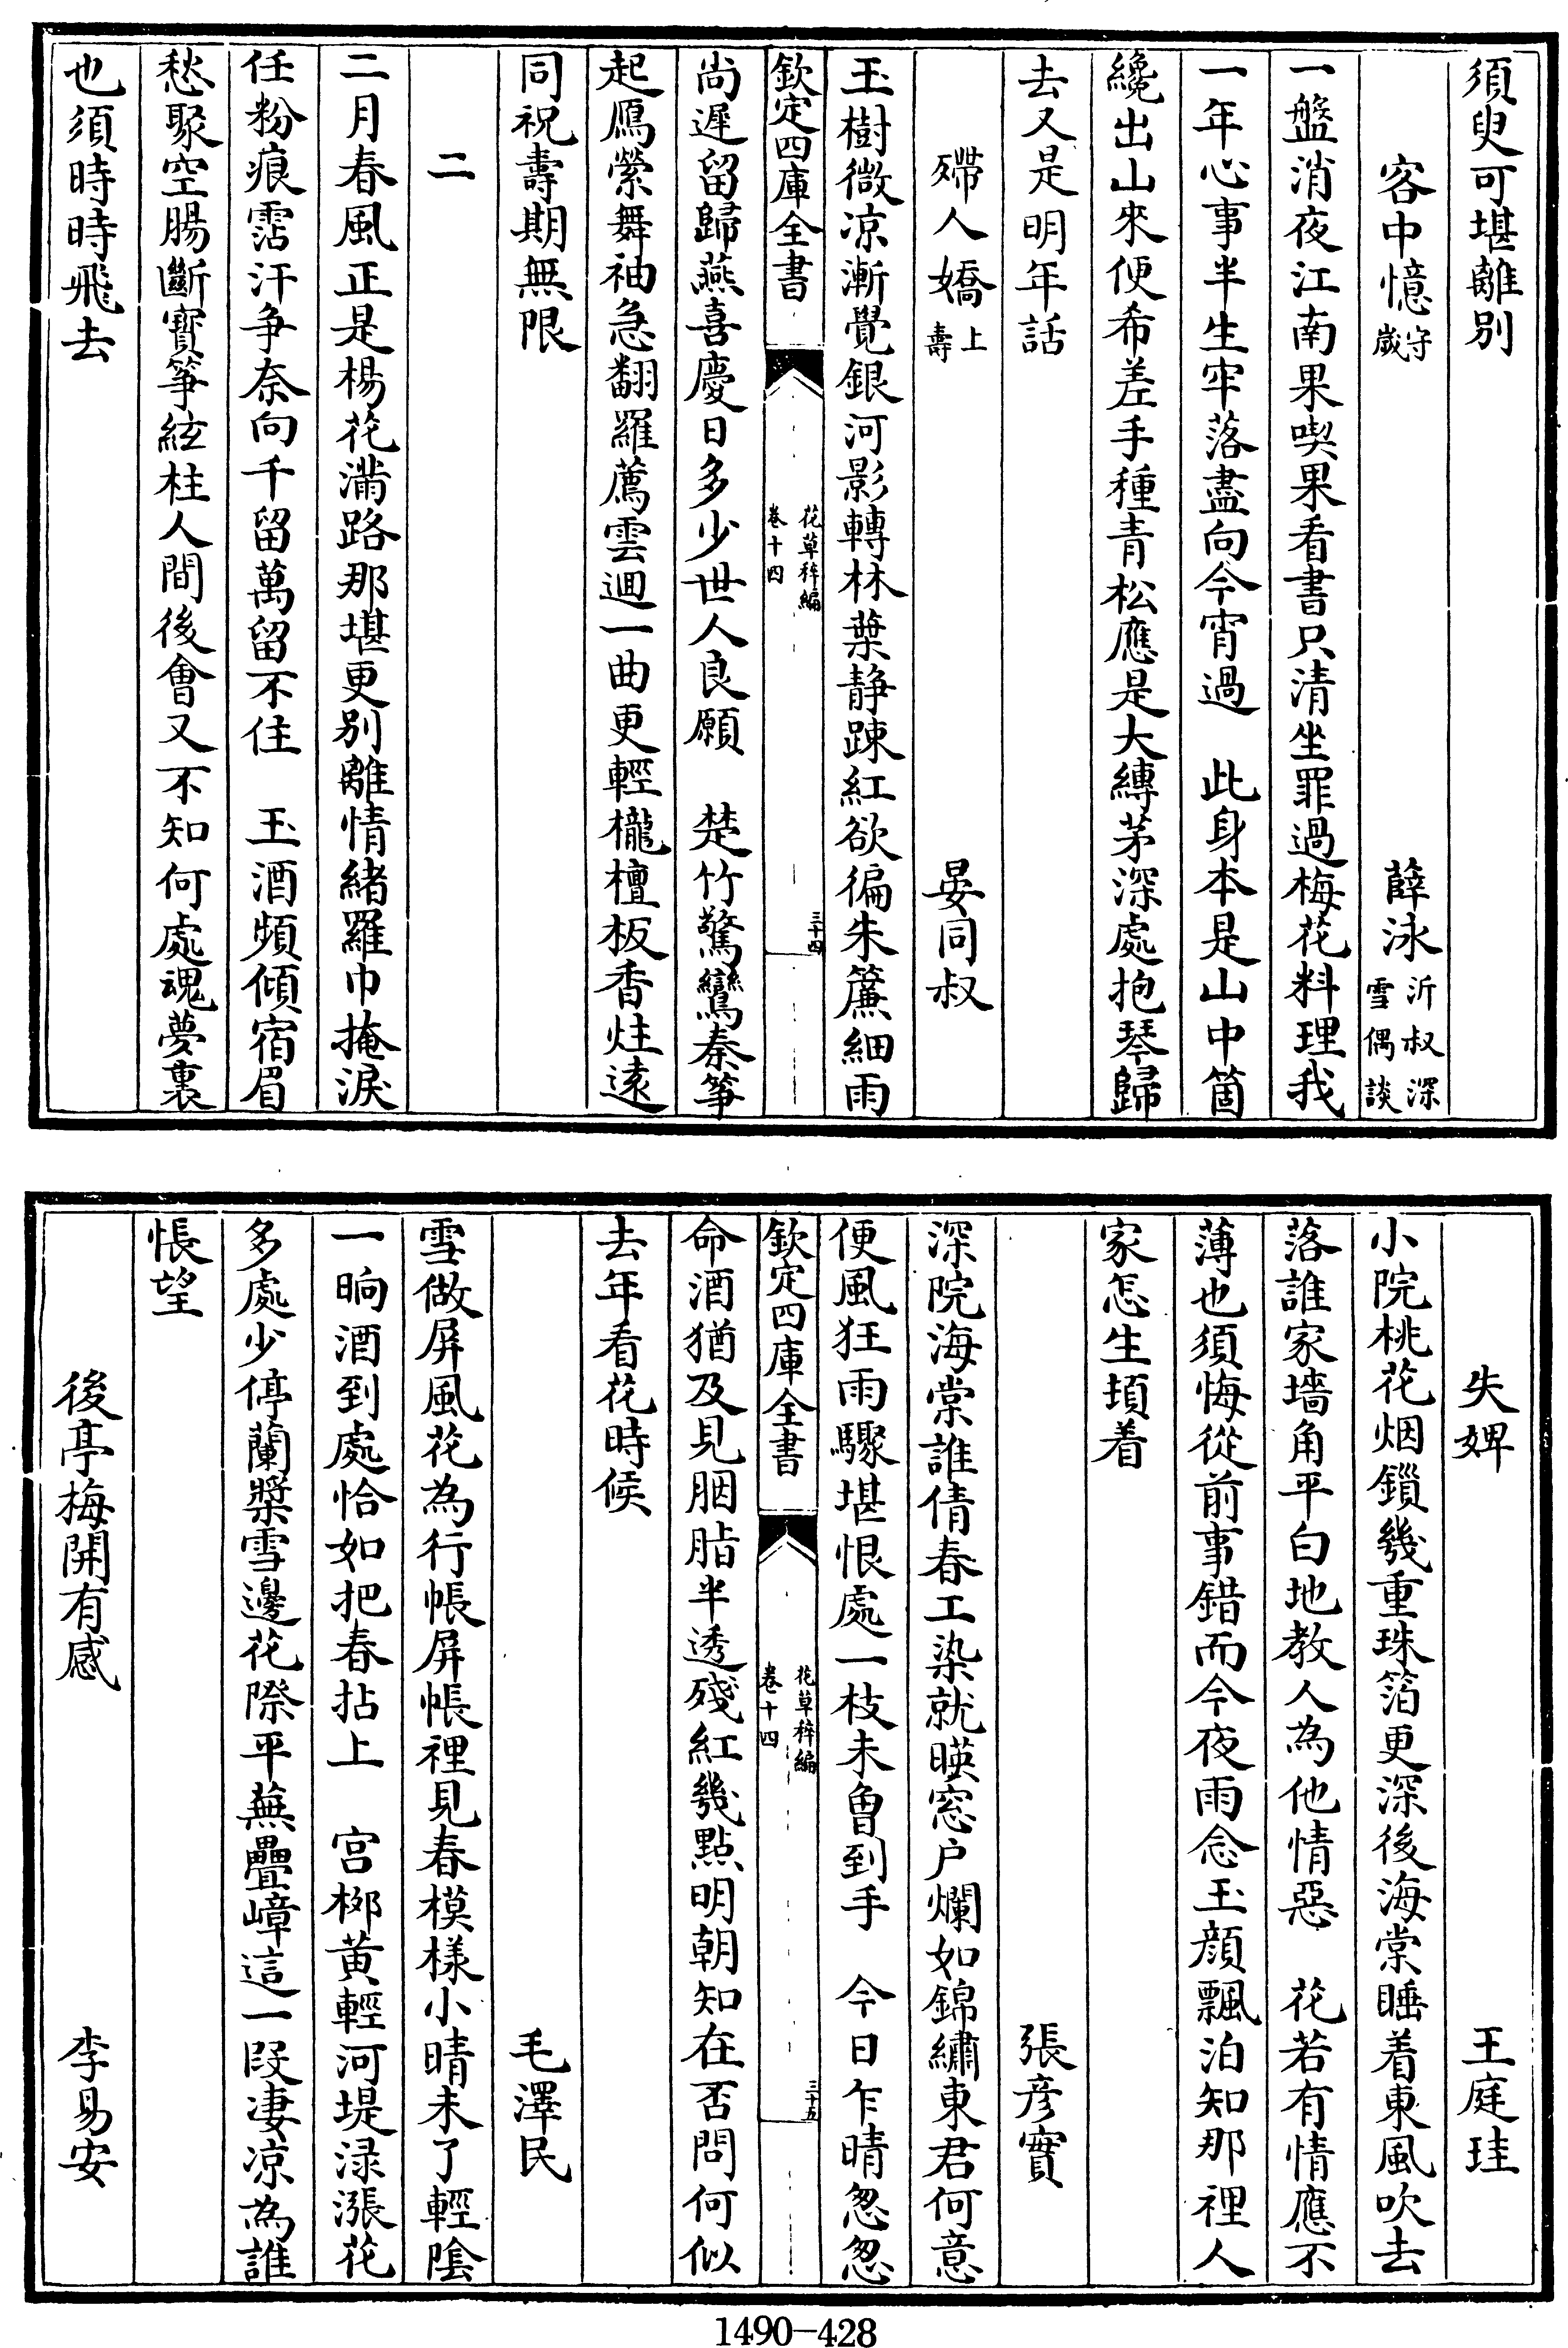 須臾可堪離別
客中憶守歲 薛泳沂叔深雪偶談
一盤消夜江南果喫果看書只清坐罪過梅花料理我
一年心事半生牢落盡向今宵過 此身本是山中箇
纔出山來便希差手種青松應是大縛茅深處抱琴歸
去又是明年話
殢人嬌上壽 晏同叔
玉樹微凉漸覺銀河影轉林葉静踈紅欲徧朱簾細雨
欽定四庫全書 花草稡編 卷十四 三十四
尚遲留歸燕喜慶日多少世人良願 楚竹驚鸞秦筝
起鴈縈舞袖急翻羅薦雲迴一曲更更輕櫳檀板香炷遠
同祝壽期無限
二
二月春風正是楊花滿路那堪更别離情緒羅巾掩淚
任粉痕霑汗争奈向千留萬留不住 玉酒頻傾宿眉
愁聚空腸斷寶筝絃柱人間後會又不知何處魂夢裏
也須時時飛去
失婢 王庭珪
小院桃花烟鎖幾重珠箔更深後海棠睡着東風吹去
落誰家墻角平白地教人為他情惡 花若有情應不
薄也須悔從前事錯而今夜雨念玉顔飄泊知那裡人
家怎生頓着
張彦實
深院海棠誰倩春工染就暎窓户爛如錦繡東君何意
便風狂雨驟堪恨處一枝未曾到手 今日乍晴怱怱
欽定四庫全書 花草稡編 卷十四 三十五
命酒猶及見胭脂半透殘紅幾點明朝知在否問何似
去年看花時候
毛澤民
雪做屏風花為行帳屏帳裡見春模樣小晴未了輕陰
一晌酒到處恰如把春拈上 宫桺黄輕河堤渌漲花
多處少停蘭槳雪邊花際平蕪疊嶂這一段凄凉為誰
悵望
後亭梅開有感 李易安
1490-428